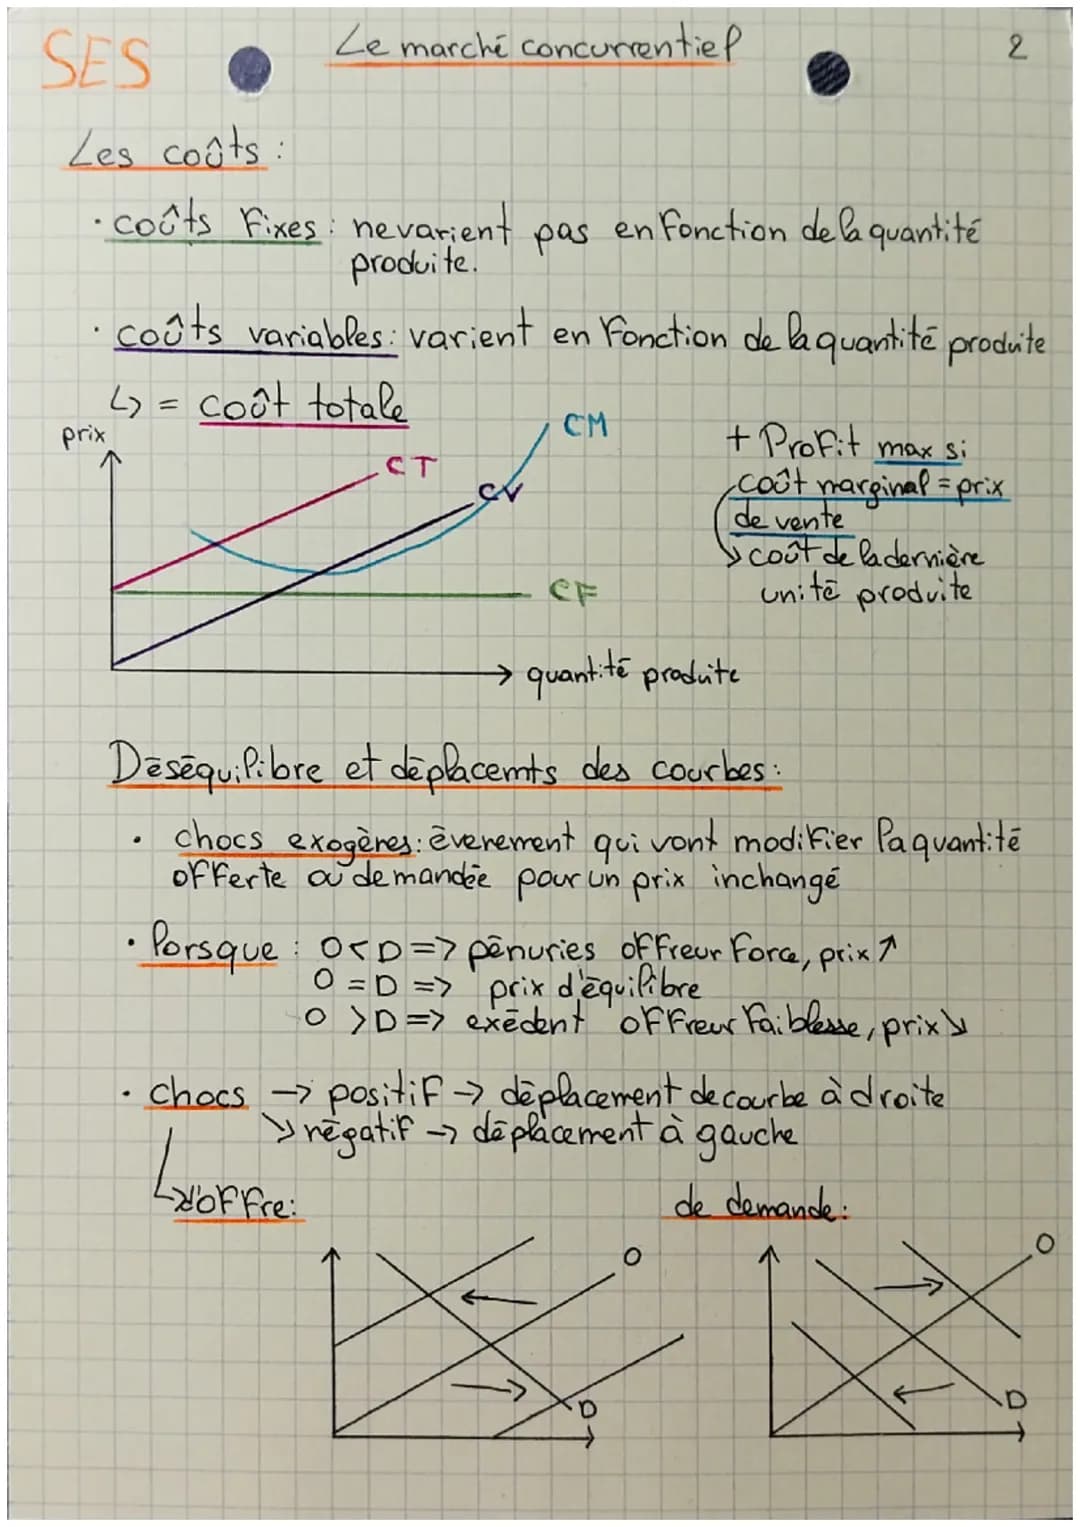 SES
Le marché concurrentiel
2
Les coûts :
· coûts fixes : ne varient pas en fonction de la quantité
produite.
· coûts variables : varient en fonction de la quantité produite
↳ = coût totale
prix
CT
CV
CM
CF
quantité produite
+ Profit max si
coût marginal = prix
de vente
↳ coût de la dernière
unité produite
Déséquilibre et déplacemts des courbes :
· chocs exogères : évenement qui vont modifier la quantité
offerte ou demandée pour un prix inchangé
· lorsque : O < D => pénuries offreur force, prix ↗
O = D => prix d'équilibre
O > D => exédent offreur faiblesse, prix ↘
· chocs → positif → déplacement de courbe à droite
↘ négatif → déplacement à gauche
↳ d'offre :
de demande :
O
D
O
D